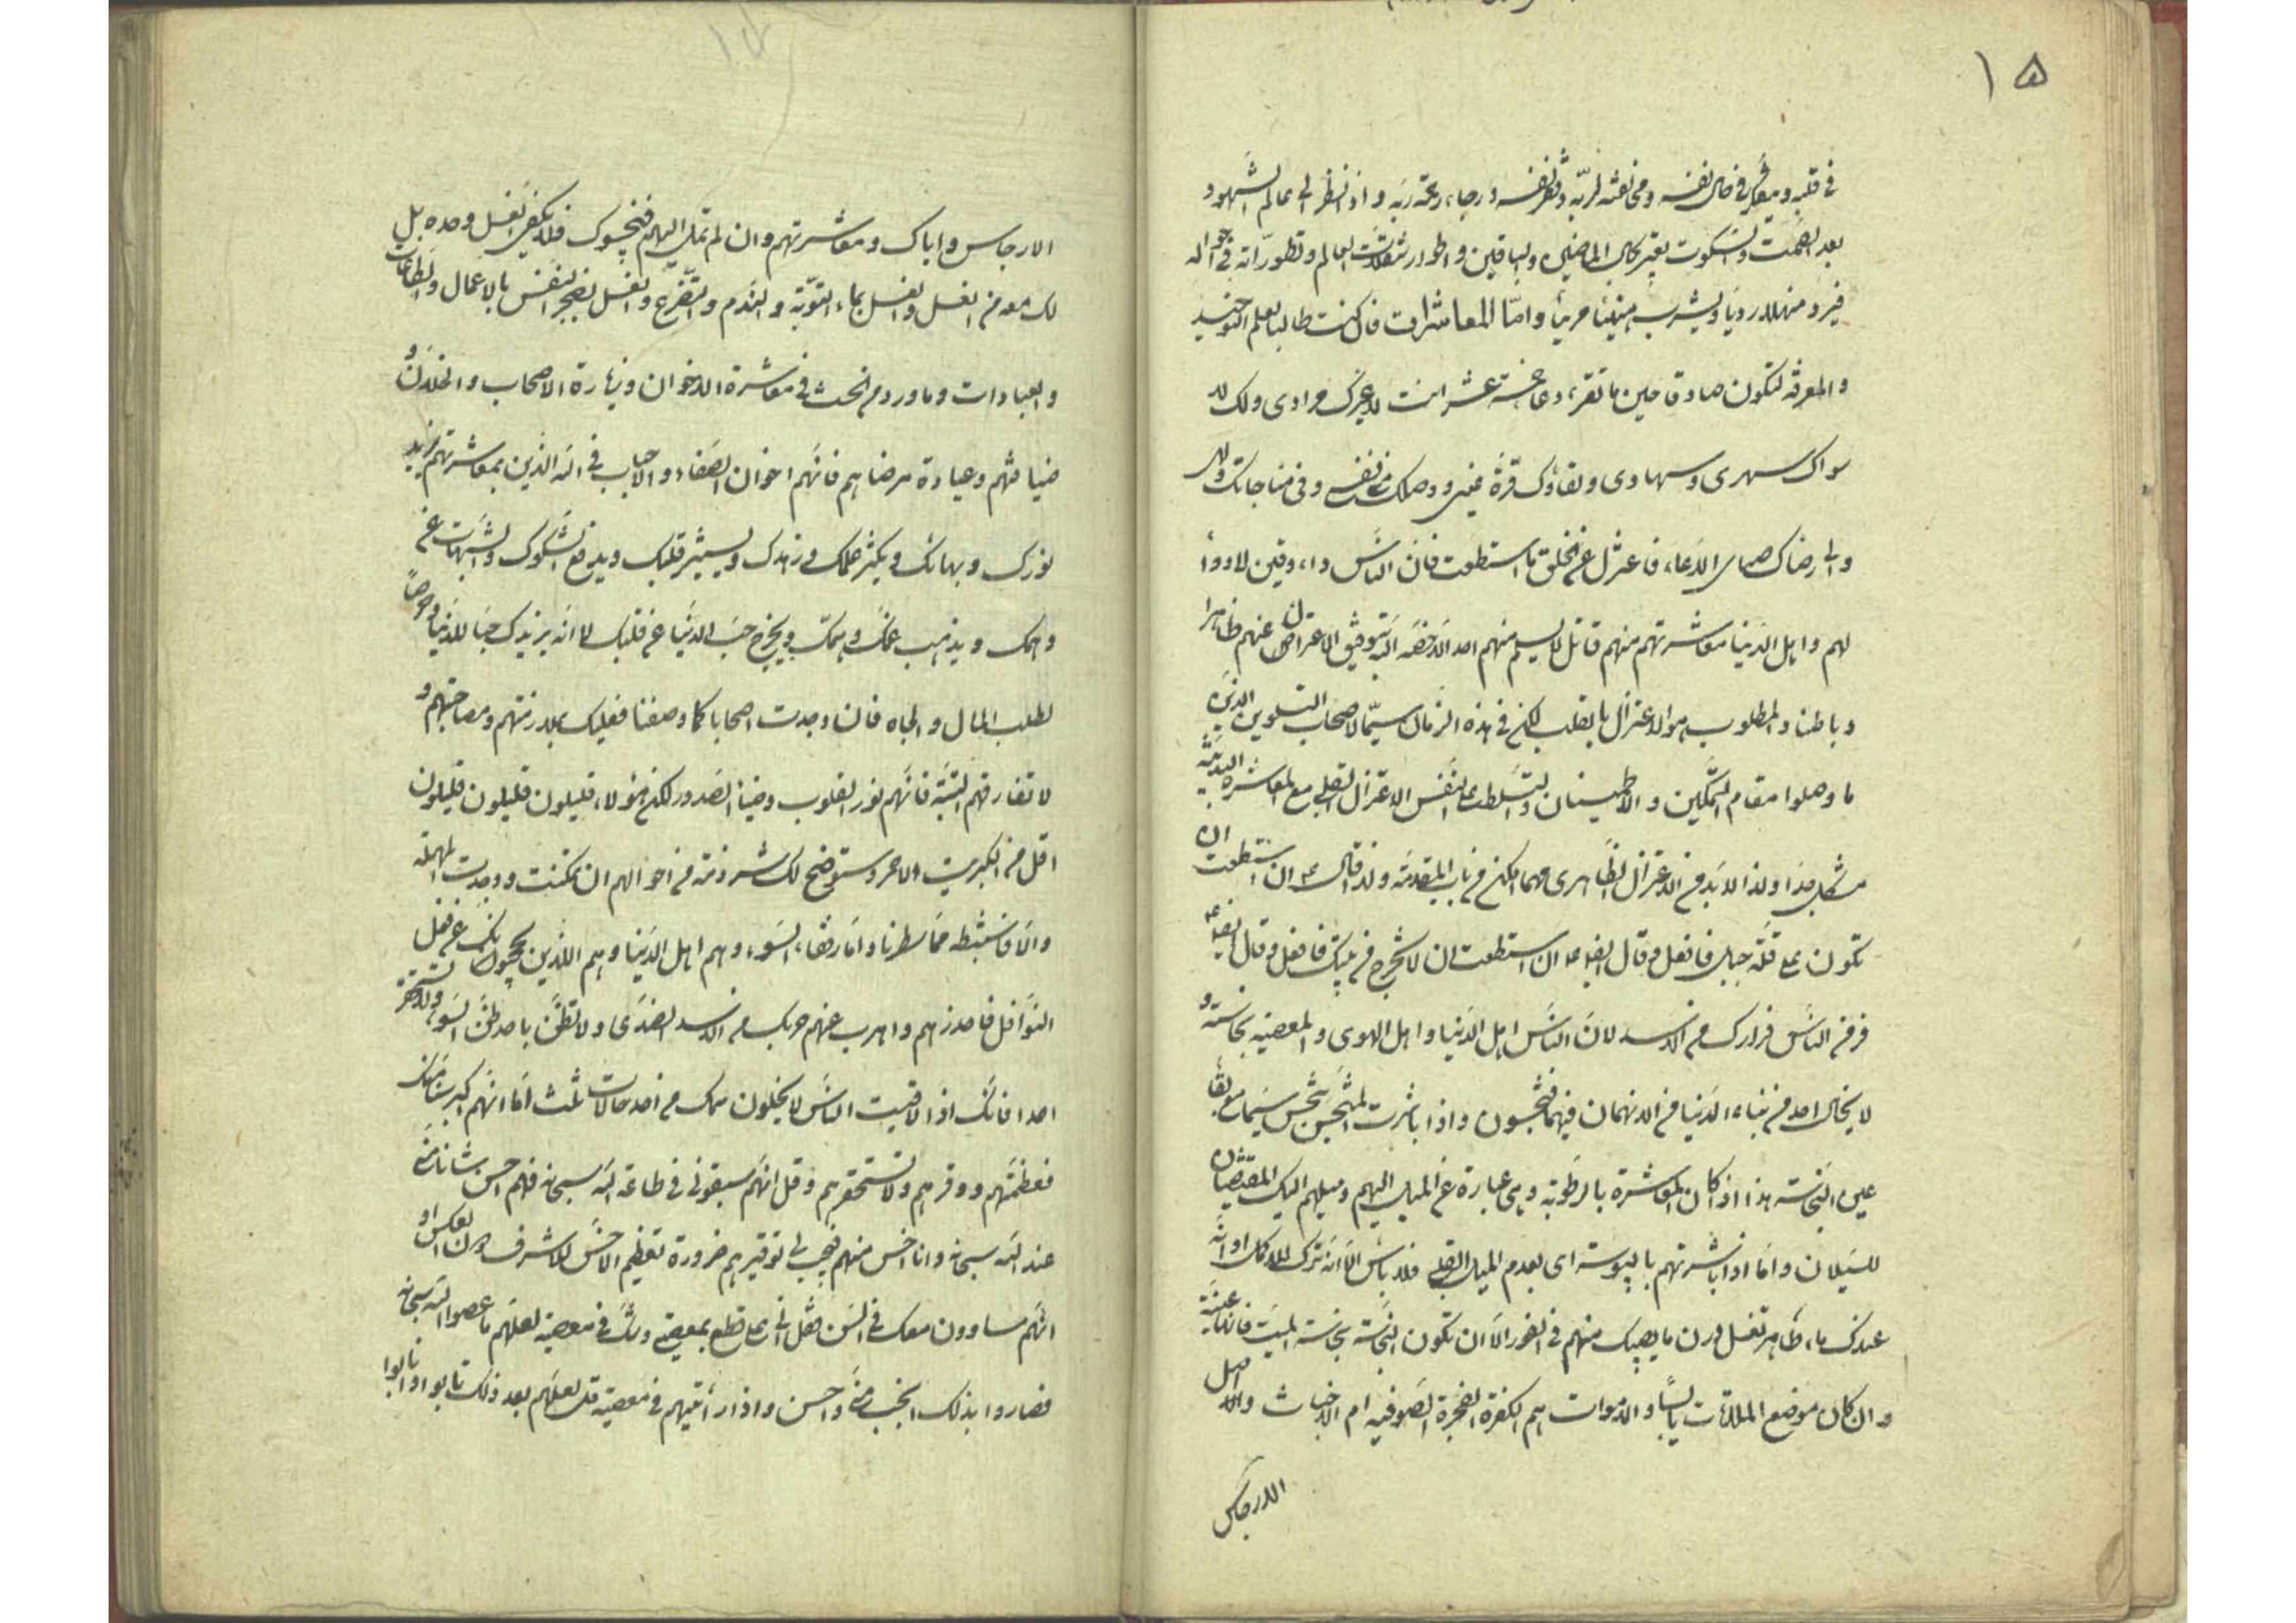 ١٥
في قلبه ويتفكر في حال نفسه ومخالفته لربه وفقر نفسه ورجاء رحمة ربه واذا نظر الى عالم الشهود
بعد الصمت والسكوت يعتبر بحال الماضين والباقين واطوار تنقلات العالم وتطوراته في احواله
فيرد منهلا رويا ويشرب هنيئا مريئا واما المعاشرات فان كنت طالبا لعلم التوحيد
والمعرفة لتكون صادقا حين ما تقرء دعا خمسة عشر انت لا غيرك مرادي ولك لا
سواك سهري وسهادي ولقاؤك قرة عيني ووصلك منى نفسي وفي مناجاتك ولهي
والى رضاك صباى الدعاء فاعتزل عن الخلق ما استطعت فان الناس داء دفين لا دواء
لهم واهل الدنيا معاشرتهم منهم قاتل لا يسلم منهم احد الا من خصه الله بتوفيق الاعتزال عنهم ظاهرا
وباطنا والمطلوب هو الاعتزال بالقلب لكن في هذه الزمان سيما لاصحاب التلوين الذين
ما وصلوا مقام التمكين والاطمينان والتسلط على النفس الاعتزال القلبي مع المعاشرة البدنية
مشكل جدا ولذا لابد من الاعتزال الظاهري مهما امكن من باب المقدمة ولذا قال ع ان استطعت ان
تكون على قلة جبل فافعل وقال ايضا ع ان استطعت ان لا تخرج من بيتك فافعل وقال ايضا ع
فر من الناس فرارك من الاسد لان الناس اهل الدنيا واهل الهوى والمعصية نجاسة و
لا يخلو احد من ابناء الدنيا من الانهماك فيهما فتجسون واذا باشرت المتنجس تنجس سيما مع بقاء
عين النجاسة هذا اذا كان المعاشرة بالرطوبة وهي عبارة عن الميل اليهم وميلهم اليك المقتضيان
للسيلان واما اذا باشرتهم باليبوسة اى بعدم الميل القلبي فلا باس الا انه ترك للاكمل او انه
عندك ماء طاهر تغسل درن ما يصيبك منهم في الفور الا ان تكون النجاسة نجاسة الميت فانها عينية
وان كان موضع الملاقات يابسا والاموات هم الكفرة الفجرة الصوفية ام الاخباث واصل
الارجاس
الارجاس واياك ومعاشرتهم وان لم تمل اليهم فتنجسوك فلا يكفي الغسل وحده بل
لك معه من الغسل والغسل بماء التوبة والندم والتضرع والغسل بضجر النفس بالاعمال والطاعات
والعبادات وما ورد من الحث في معاشرة الاخوان وزيارة الاصحاب والخلان و
ضيافتهم وعيادة مرضاهم فانهم اخوان الصفاء والاحباب في الله الذين بمعاشرتهم يزيد
نورك وبهائك ويكثر علمك وزهدك ويستنير قلبك ويدفع الشكوك والشبهات عن
وهمك ويذهب غمك وهمك ويخرج حب الدنيا عن قلبك لا انه يزيدك حبا للدنيا وحرصا
لطلب المال والجاه فان وجدت اصحابا كما وصفنا فعليك بملازمتهم ومصاحبتهم و
لا تفارقهم البتة فانهم نور القلوب وضياء الصدور لكن هؤلاء قليلون قليلون قليلون
اقل من الكبريت الاحمر وستوضح لك شرذمة من احوالهم ان تمكنت ووجدت المهملة
والا فاستنبطه مما سطرنا واما رفقاء السوء وهم اهل الدنيا وهم اللذين يحجبونك عن فعل
النوافل فاحذرهم واهرب عنهم هربك من الاسد الضاري ولا تظن باحد ظن السوء ولا تستحقر
احدا فانك اذا لاقيت الناس لا يخلون معك من احد حالات ثلث اما انهم اكبر سنا منك
فعظمهم ووقرهم ولا تستحقرهم وقل انهم سبقوني في طاعة الله سبحانه فهم احسن شانا مني
عند الله سبحانه وانا اخس منهم فيجب لي توقيرهم ضرورة تعظيم الاخس للاشرف دون العكس او
انهم مساوون معك في السن فقل اني على قطع بمعصيتي وشك في معصية لعلهم ما عصوا الله سبحانه
فصاروا بذلك انجب مني واحسن واذا رايتهم في معصية قل لعلهم بعد ذلك تابوا او انابوا